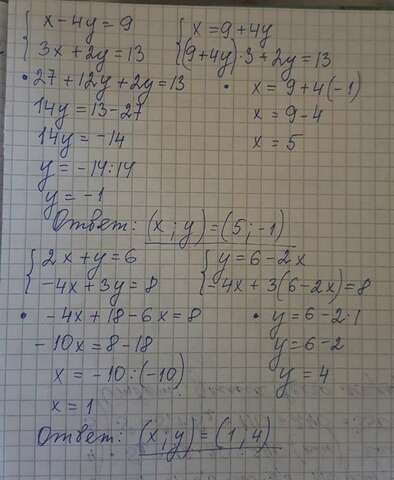 x - 4y = 9
3x + 2y = 13
x = 9 + 4y
(9 + 4y) · 3 + 2y = 13
• 27 + 12y + 2y = 13
14y = 13 - 27
14y = -14
y = -14 : 14
y = -1
• x = 9 + 4(-1)
x = 9 - 4
x = 5
Ответ: (x ; y) = (5 ; -1)
2x + y = 6
-4x + 3y = 8
y = 6 - 2x
-4x + 3(6 - 2x) = 8
• -4x + 18 - 6x = 8
-10x = 8 - 18
x = -10 : (-10)
x = 1
• y = 6 - 2 · 1
y = 6 - 2
y = 4
Ответ: (x ; y) = (1 ; 4)